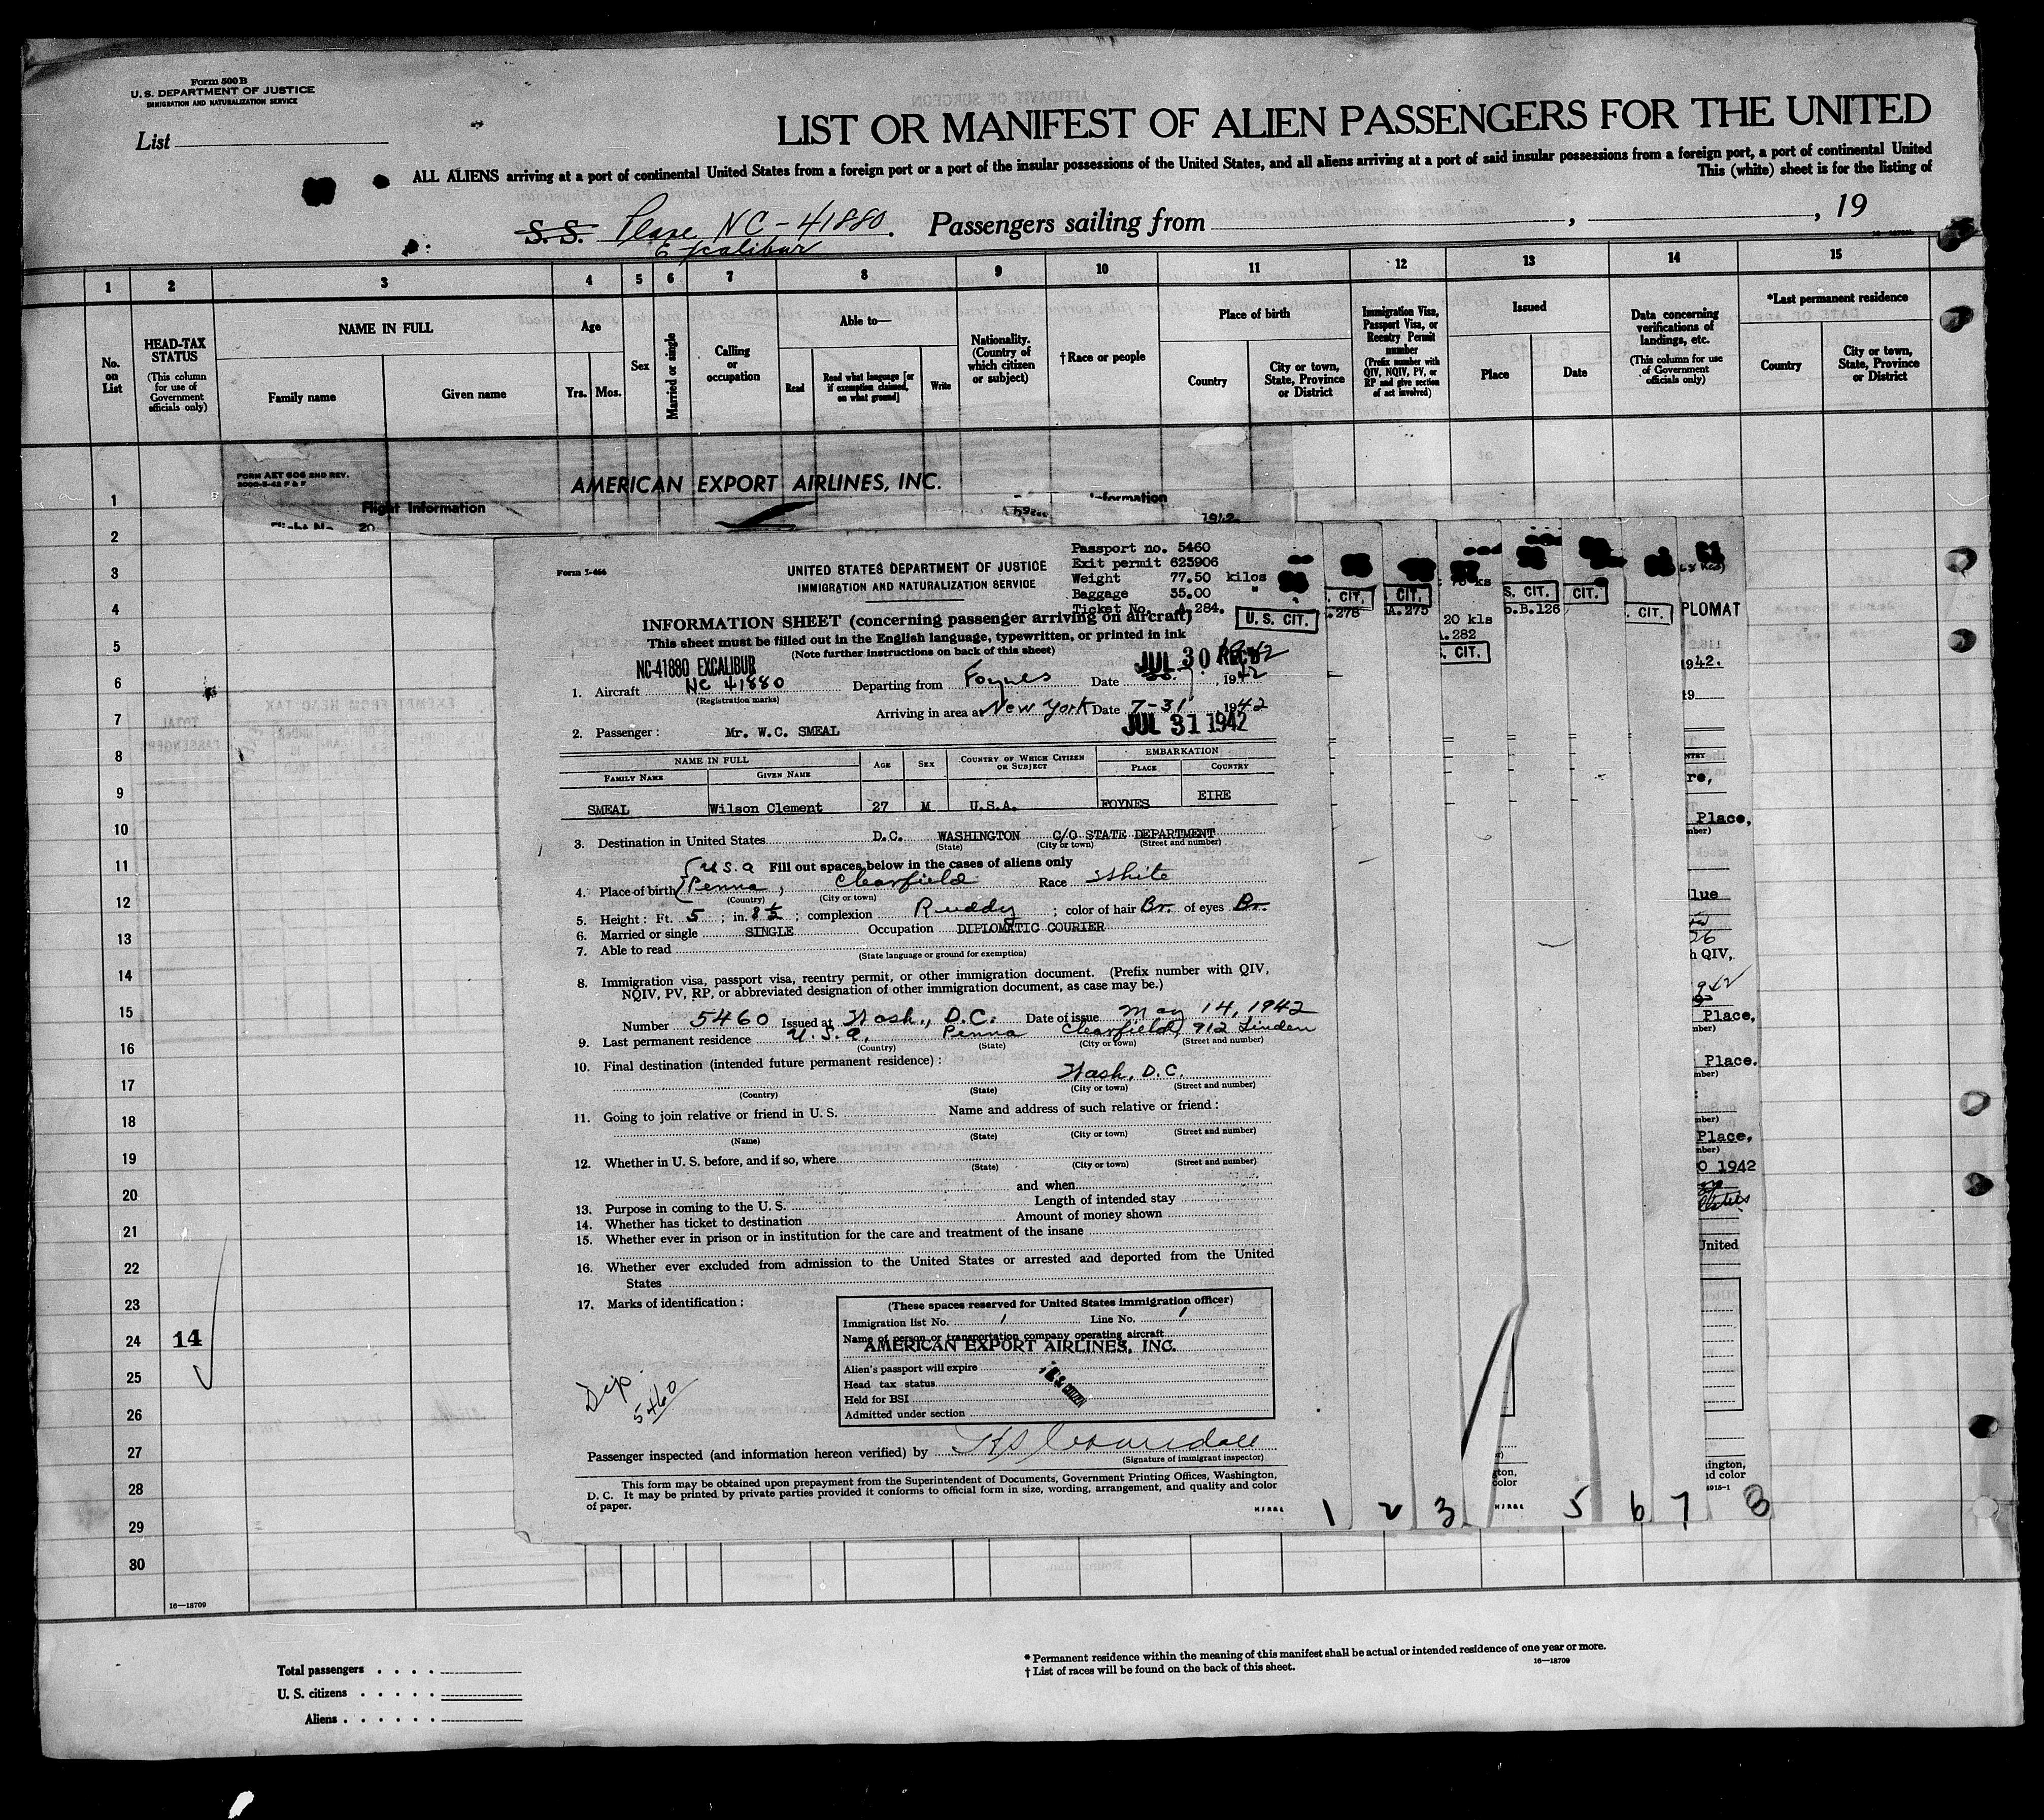 Form 500 B
U. S. DEPARTMENT OF JUSTICE
IMMIGRATION AND NATURALIZATION SERVICE
List
LIST OR MANIFEST OF ALIEN PASSENGERS FOR THE UNITED
ALL ALIENS arriving at a port of continental United States from a foreign port or a port of the insular possessions of the United States, and all aliens arriving at a port of said insular possessions from a foreign port, a port of continental United
This (white) sheet is for the listing of
S. S. Plane NC-41880. Passengers sailing from , , 19
Excalibur
1 2 3 4 5 6 7 8 9 10 11 12 13 14 15
No. on List
HEAD-TAX STATUS
(This column for use of Government officials only)
NAME IN FULL
Family name
Given name
Age
Yrs.
Mos.
Sex
Married or single
Calling or occupation
Able to—
Read
Read what language [or if exemption claimed, on what ground]
Write
Nationality. (Country of which citizen or subject)
†Race or people
Place of birth
Country
City or town, State, Province or District
Immigration Visa, Passport Visa, or Reentry Permit number
(Prefix number with QIV, NQIV, PV, or RP and give section of act involved)
Issued
Place
Date
Data concerning verifications of landings, etc.
(This column for use of Government officials only)
*Last permanent residence
Country
City or town, State, Province or District
1
2
3
4
5
6
7
8
9
10
11
12
13
14
15
16
17
18
19
20
21
22
23
24 14
25
26
27
28
29
30
16—18709
FORM AET 606 2ND REV.
AMERICAN EXPORT AIRLINES, INC.
Flight Information
Information
1942
Passport no. 5460
Exit permit 623906
Weight 77.50 kilos
Baggage 35.00 "
Ticket No. A.284.
U. S. CIT.
UNITED STATES DEPARTMENT OF JUSTICE
IMMIGRATION AND NATURALIZATION SERVICE
INFORMATION SHEET (concerning passenger arriving on aircraft)
This sheet must be filled out in the English language, typewritten, or printed in ink
(Note further instructions on back of this sheet)
NC-41880 EXCALIBUR
JUL 30 REC'D
1. Aircraft NC 41880 Departing from Foynes Date , 1942
(Registration marks)
Arriving in area at New York Date 7-31 1942
JUL 31 1942
2. Passenger: Mr. W.C. SMEAL
NAME IN FULL
FAMILY NAME
GIVEN NAME
AGE
SEX
COUNTRY OF WHICH CITIZEN OR SUBJECT
EMBARKATION
PLACE
COUNTRY
SMEAL Wilson Clement 27 M U.S.A. FOYNES EIRE
3. Destination in United States D.C. WASHINGTON C/O STATE DEPARTMENT
(State) (City or town) (Street and number)
U.S.A Fill out spaces below in the cases of aliens only
4. Place of birth Penna, Clearfield Race White
(Country) (City or town)
5. Height: Ft. 5; in. 8½; complexion Ruddy; color of hair Br. of eyes Br.
6. Married or single SINGLE Occupation DIPLOMATIC COURIER
7. Able to read
(State language or ground for exemption)
8. Immigration visa, passport visa, reentry permit, or other immigration document. (Prefix number with QIV,
NQIV, PV, RP, or abbreviated designation of other immigration document, as case may be.)
Number 5460 Issued at Wash., D.C. Date of issue May 14, 1942
9. Last permanent residence U.S.A. Penna Clearfield, 912 Linden
(Country) (State) (City or town) (Street and number)
10. Final destination (intended future permanent residence):
Wash, D.C.
(Country) (State) (City or town) (Street and number)
11. Going to join relative or friend in U. S. Name and address of such relative or friend:
(Name) (State) (City or town) (Street and number)
12. Whether in U. S. before, and if so, where
(State) (City or town) (Street and number)
and when
13. Purpose in coming to the U. S. Length of intended stay
14. Whether has ticket to destination Amount of money shown
15. Whether ever in prison or in institution for the care and treatment of the insane
16. Whether ever excluded from admission to the United States or arrested and deported from the United
States
17. Marks of identification:
(These spaces reserved for United States immigration officer)
Immigration list No. 1 Line No. 1
Name of person or transportation company operating aircraft
AMERICAN EXPORT AIRLINES, INC.
Alien's passport will expire
Head tax status
Held for BSI
Admitted under section
Dip.
5460
Passenger inspected (and information hereon verified) by
(Signature of immigrant inspector)
This form may be obtained upon prepayment from the Superintendent of Documents, Government Printing Offices, Washington,
D. C. It may be printed by private parties provided it conforms to official form in size, wording, arrangement, and quality and color
of paper.
. CIT.
.278
CIT.
A.275
20 kls
A.282
S. CIT.
S. CIT.
o.B.126
CIT.
. CIT.
PLOMAT
1942.
19
re,
Place,
mber)
lue
26
h QIV,
Place,
mber)
Place.
mber)
mber)
Place,
mber)
0 1942
United
gton,
color
ington,
nd color
1 2 3 5 6 7 8
Total passengers
U. S. citizens
Aliens
* Permanent residence within the meaning of this manifest shall be actual or intended residence of one year or more.
† List of races will be found on the back of this sheet.
16—18709